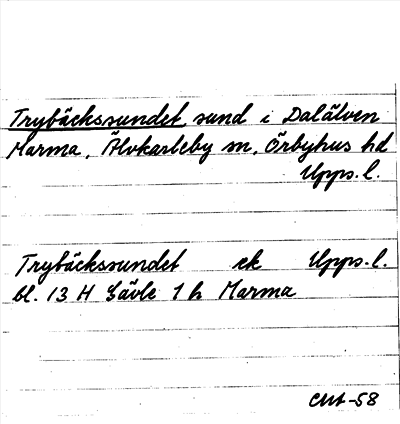 Trybäckssundet, sund i Dalälven
Marma, Älvkarleby sn, Örbyhus hd
Upps. l.
Trybäckssundet ek Upps. l.
bl. 13 H Gävle 1 h Marma
-58